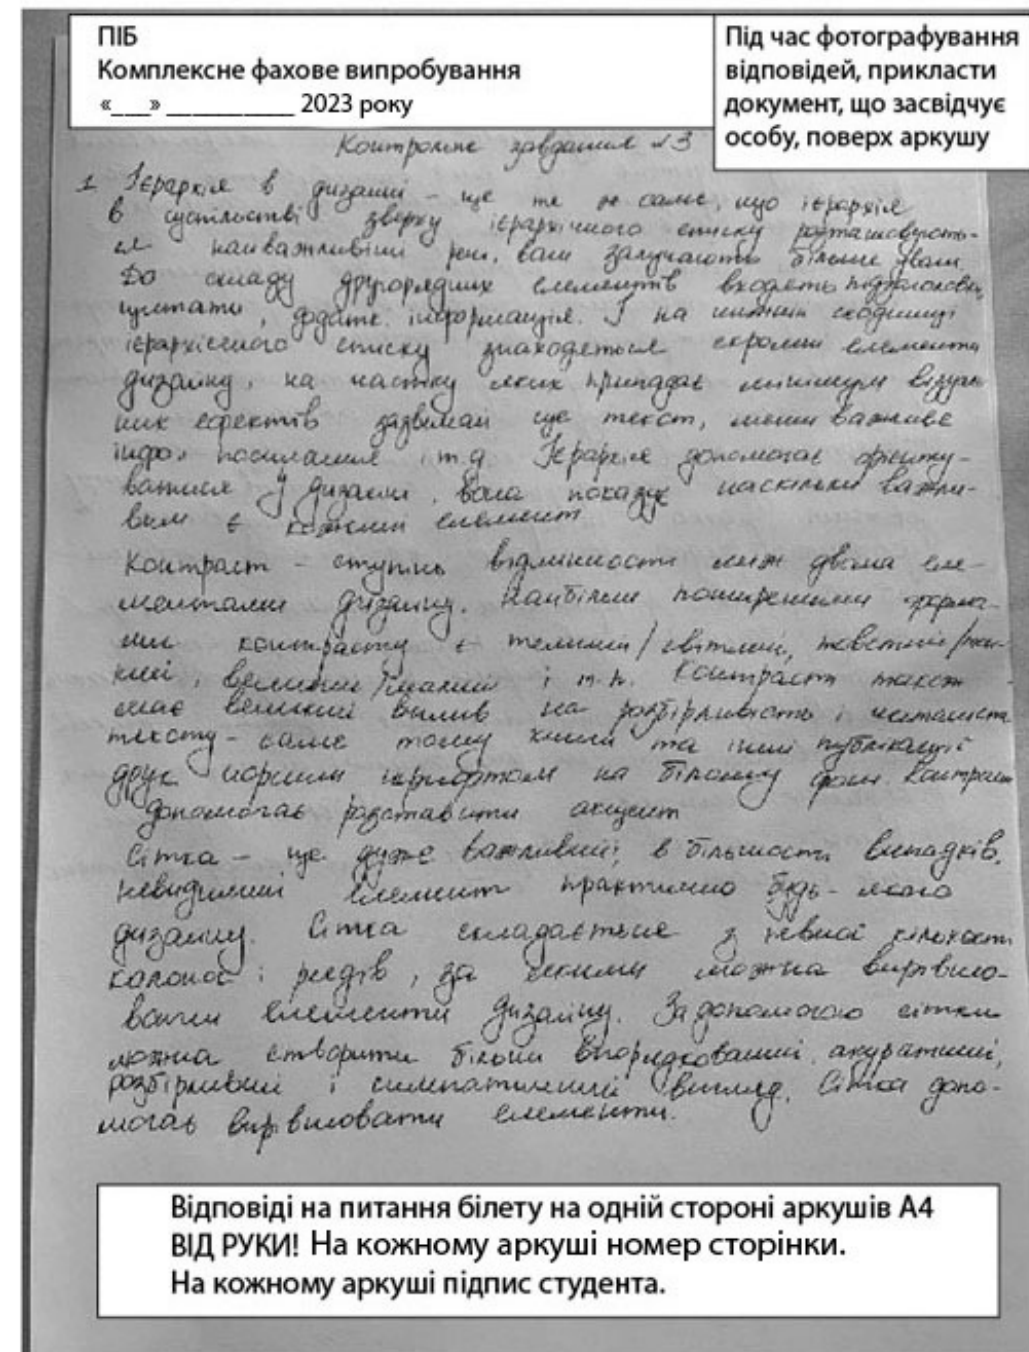 ПІБ
Комплексне фахове випробування
«___» __________ 2023 року
Під час фотографування
відповідей, прикласти
документ, що засвідчує
особу, поверх аркушу
Контрольне завдання №3
1. Ієрархія в дизайні – це те ж саме, що ієрархія
в суспільстві зверху ієрархічного списку розташовують-
ся найважливіші речі, вони залучають більше уваги.
До складу другорядних елементів входять підзаголовки,
цитати, додатк. інформація. І на нижній сходинці
ієрархічного списку знаходяться скромні елементи
дизайну, на частку яких припадає мінімум візуаль
них ефектів зазвичай це текст, менш важлива
інфо., посилання і т.д. Ієрархія допомагає орієнту-
ватися у дизайні, вона показує наскільки важли-
вим є кожний елемент
Контраст – ступінь відмінності між двома еле-
ментами дизайну. Найбільш поширеними форма-
ми контрасту є темний/світлий, товстий/тон-
кий, великий/малий і т.п. Контраст також
має великий вплив на розбірливість і читаність
тексту – саме тому книги та інші публікації
друк чорним шрифтом на білому фоні. Контраст
допомагає розставити акцент
Сітка – це дуже важливий, в більшості випадків,
невидимий елемент практично будь-якого
дизайну. Сітка складається з певної кількості
колонок і рядів, за якими можна вирівню-
вати елементи дизайну. За допомогою сітки
можна створити більш впорядкований, акуратний,
розбірливий і симпатичний вигляд. Сітка допо-
магає вирівнювати елементи.
Відповіді на питання білету на одній стороні аркушів А4
ВІД РУКИ! На кожному аркуші номер сторінки.
На кожному аркуші підпис студента.